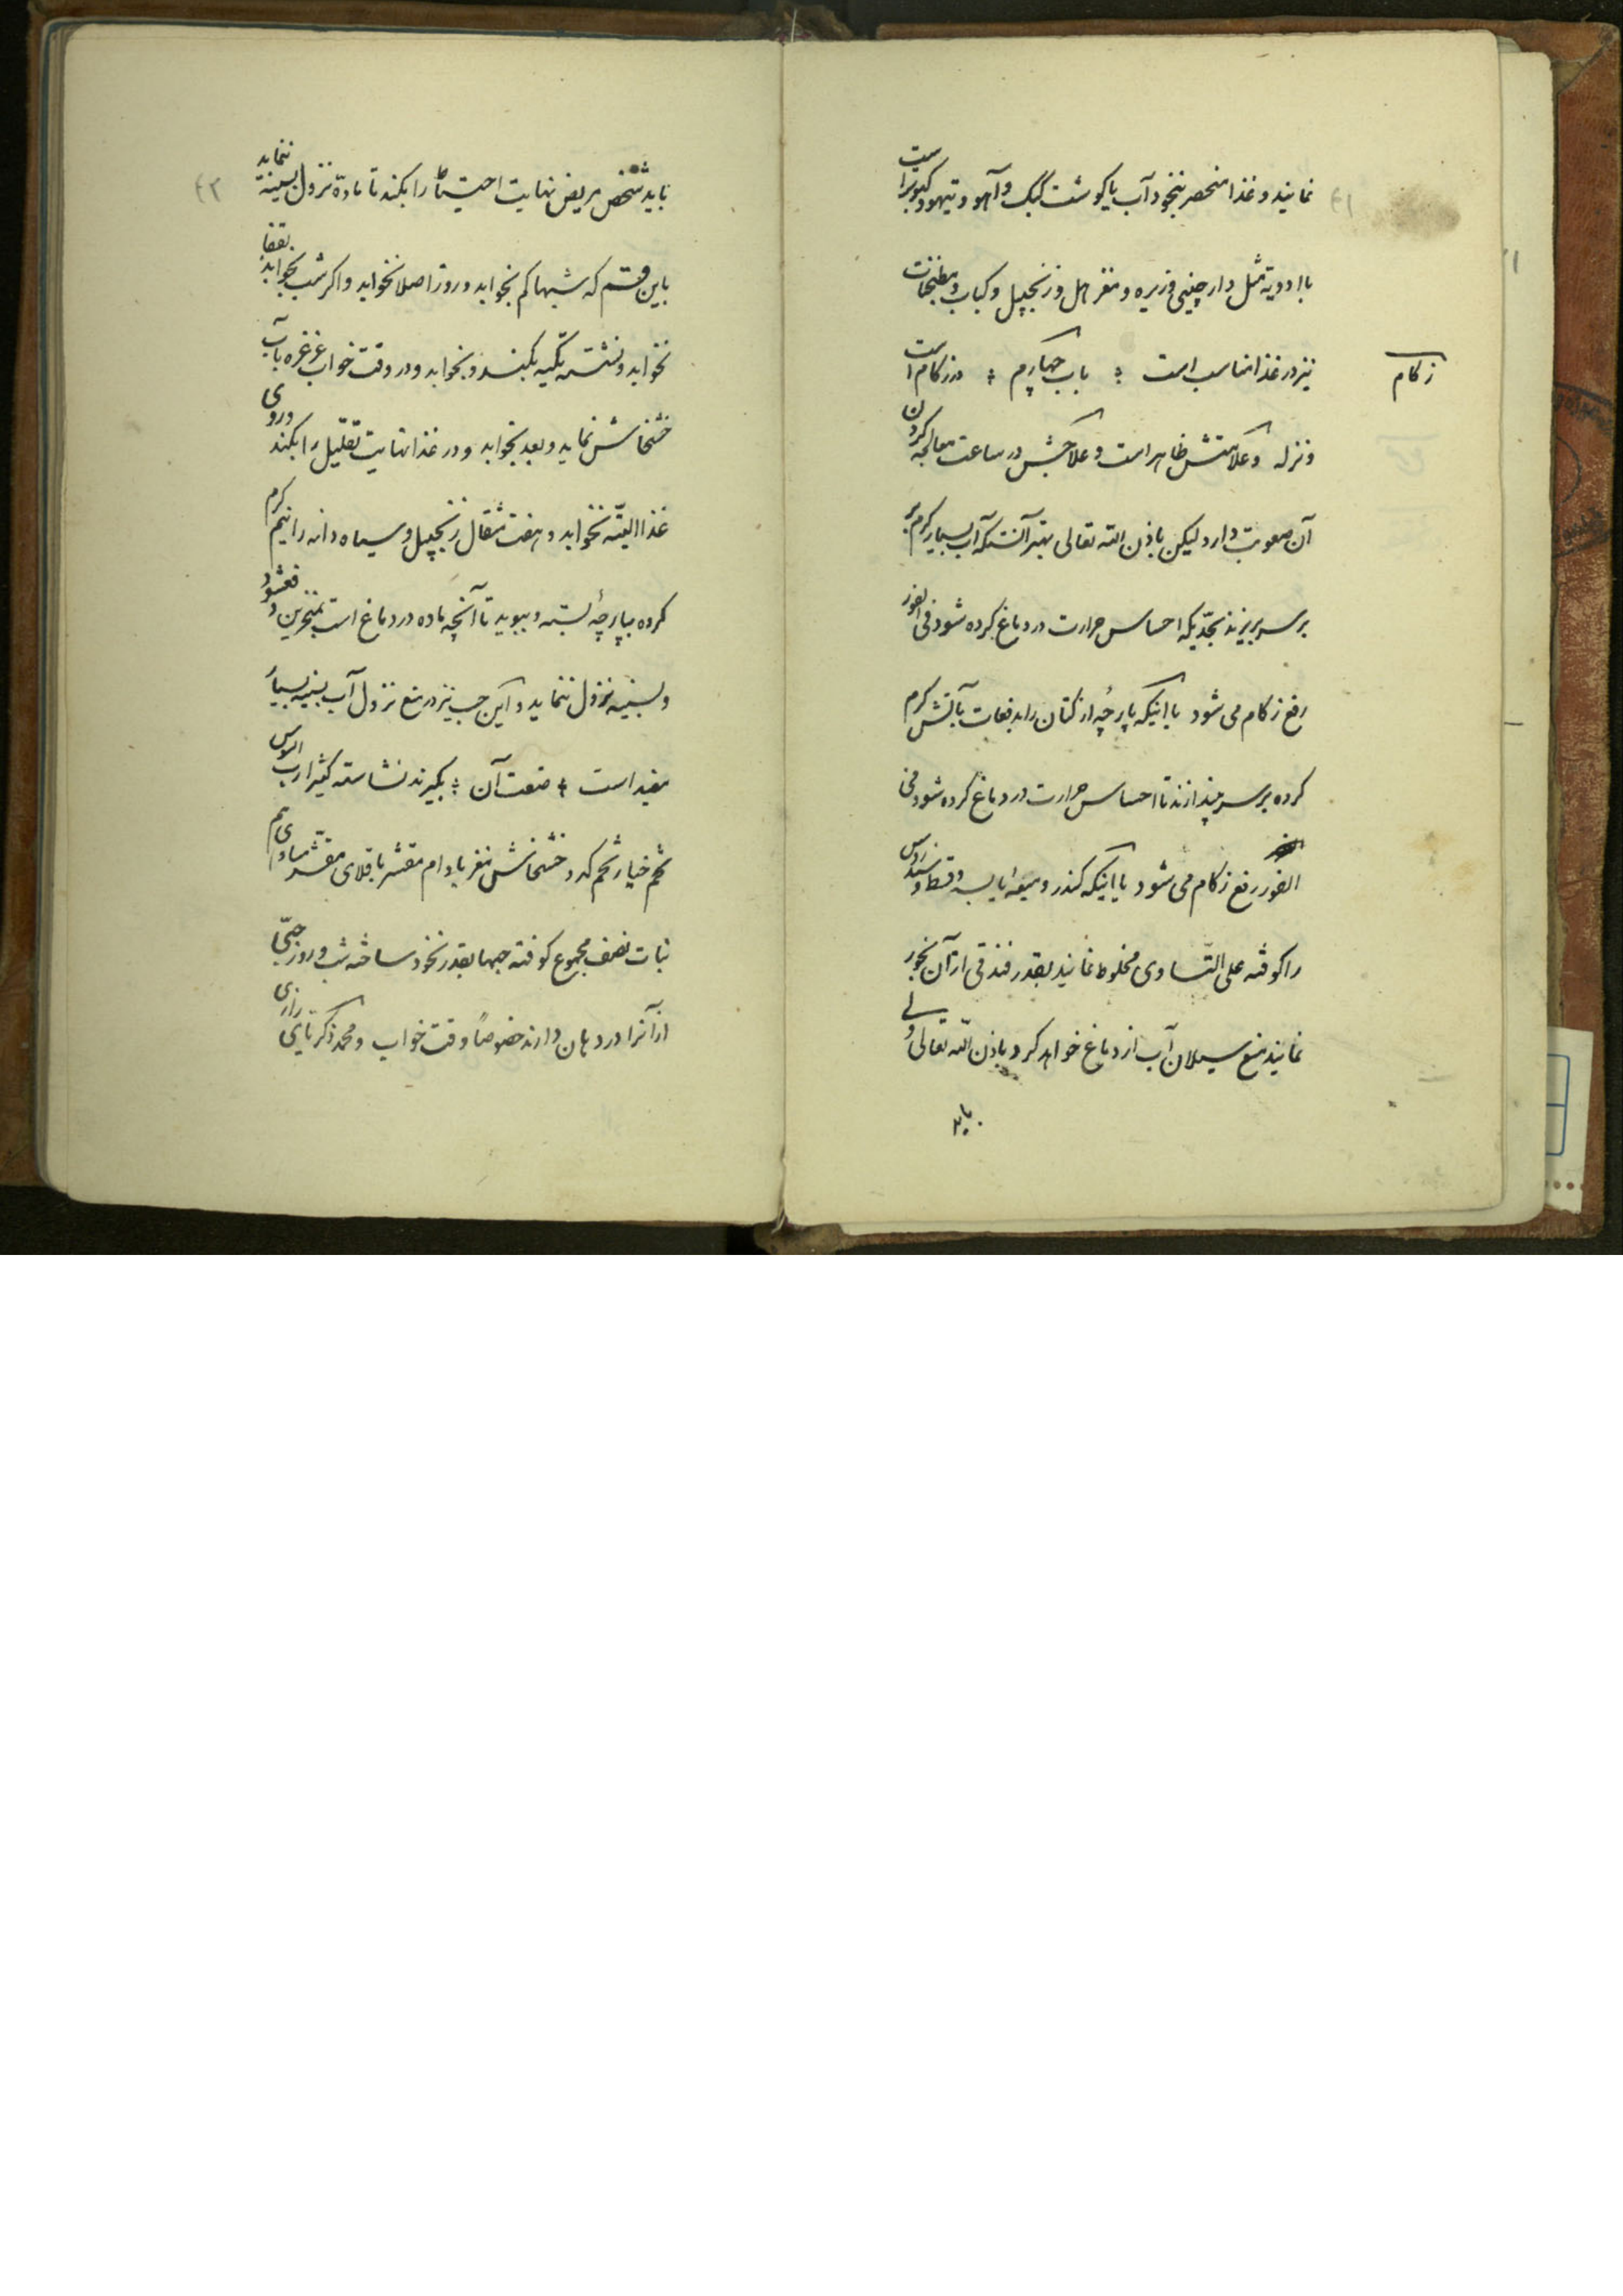 ۴۱
نمایند و غذا منحصر بنخود آب یا کوشت کبک و آهو و تیهو و کبوتر است
با ادویه مثل دارچینی و زیره و مغز هل و زنجبیل و کباب و مطنجات
نیز در غذا مناسب است ؛ باب چهارم ؛ در زکام است
زکام
و نزله و علامتش ظاهر است و علاجش در ساعت معالجه کردن
آن صعوبت دارد لیکن باذن الله تعالی بهتر آنستکه آب بسیار کرم بر
بر سر بریزند بحدّیکه احساس حرارت در دماغ کرده شود فی الفور
رفع زکام می شود یا اینکه پارچهٔ از کتان را بدفعات بآتش کرم
کرده بر سر بیندازند تا احساس حرارت در دماغ کرده شود فی
الفور رفع زکام می شود یا اینکه کندر و میعهٔ یابسه و قسط و سندروس
را کوفته علی التساوی مخلوط نمایند بقدر فندقی از آن بخور
نمایند منع سیلان آب از دماغ خواهد کرد باذن الله تعالی ولی
باید
۴۲
باید شخص مریض نهایت احتیاط را بکند تا مادّه نزول بسینه ننماید
باین قسم که شبها کم بخوابد و روز اصلا نخوابد و اکر شب بخوابد بقفا
نخوابد و نشسته تکیه بکند و بخوابد و در وقت خواب غرغره بآب
خشخاش نماید و بعد بخوابد و در غذا نهایت تقلیل را بکند و روی
غذا البتّه نخوابد و هفت مثقال زنجبیل و سیاه دانه را نیم کرم
کرده بپارچهٔ بسته و ببوید تا آنچه ماده در دماغ است بمنخرین دفع شود
و بسینه نزول ننماید و این حب نیز در منع نزول آب بسینه بسیار
مفید است ؛ صنعت آن ؛ بکیرند نشاسته کثیرا رب السوس
تخم خیار تخم کدو خشخاش مغز بادام مقشر باقلای مقشّر مساوی هم
نبات نصف مجموع کوفته حبها بقدر نخود ساخته شب و روز حبّی
از آنرا در دهان دارند خصوصاً وقت خواب و محمد ذکریای رازی